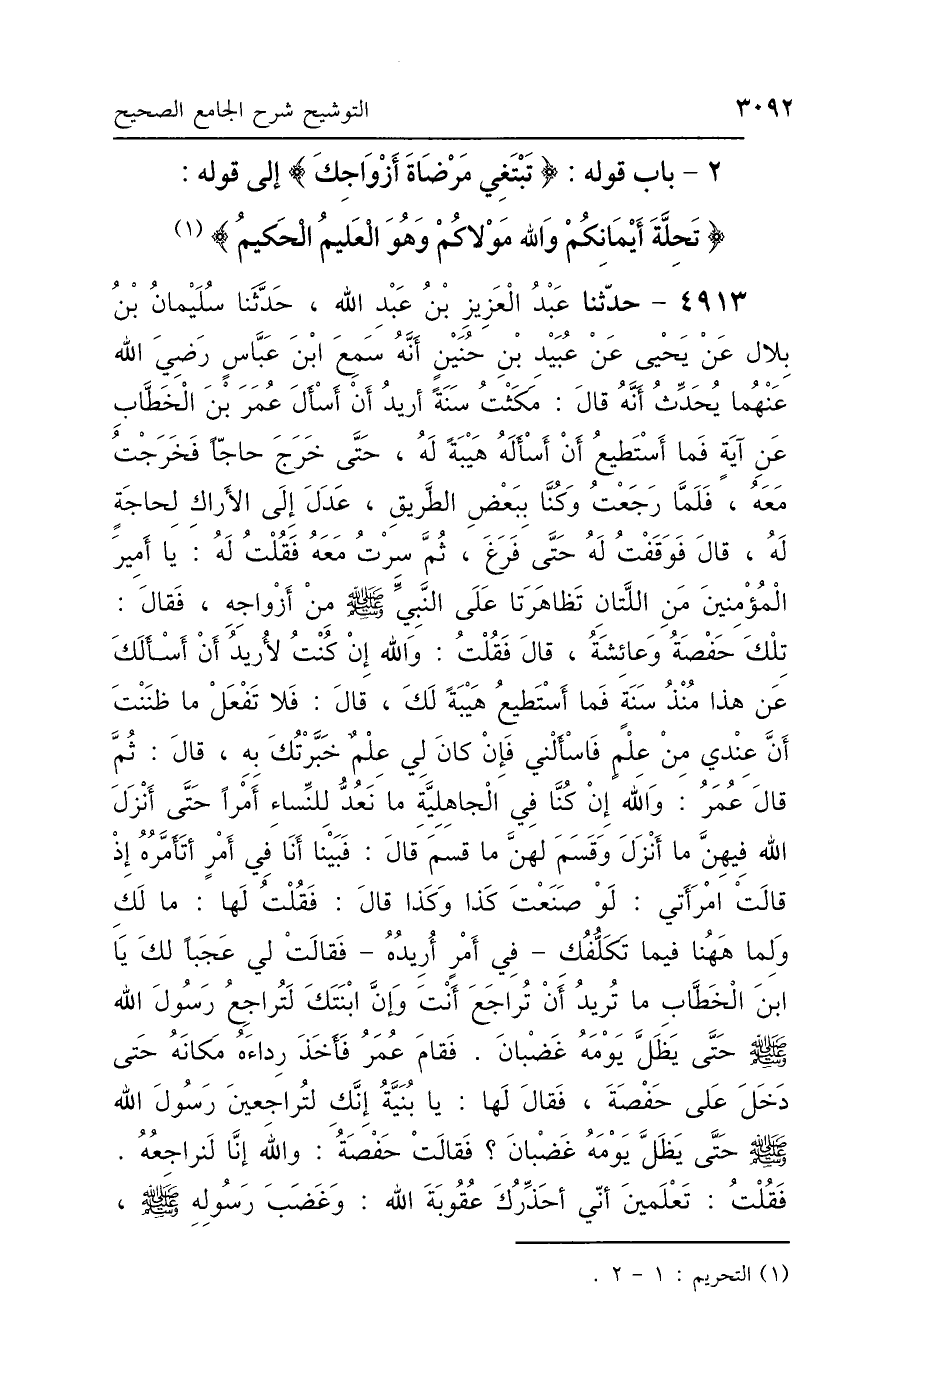 ٣٠٩٢ التوشيح شرح الجامع الصحيح
٢ - باب قوله : ﴿ تَبْتَغِي مَرْضَاةَ أَزْوَاجِكَ ﴾ إلى قوله :
﴿ تَحِلَّةَ أَيْمَانِكُمْ وَالله مَوْلاكُمْ وَهُوَ الْعَلِيمُ الْحَكِيمُ ﴾ (١)
٤٩١٣ - حدّثنا عَبْدُ الْعَزِيزِ بْنُ عَبْدِ الله ، حَدَّثَنا سُلَيْمانُ بْنُ
بِلال عَنْ يَحْيى عَنْ عُبَيْدِ بْنِ حُنَيْنٍ أَنَّهُ سَمِعَ ابْنَ عَبَّاسٍ رَضِيَ الله
عَنْهُما يُحَدِّثُ أَنَّهُ قالَ : مَكَثْتُ سَنَةً أريدُ أَنْ أَسْأَلَ عُمَرَ بْنَ الْخَطَّابِ
عَنِ آيَةٍ فَما أَسْتَطِيعُ أَنْ أَسْأَلَهُ هَيْبَةً لَهُ ، حَتَّى خَرَجَ حاجّاً فَخَرَجْتُ
مَعَهُ ، فَلَمَّا رَجَعْتُ وَكُنَّا بِبَعْضِ الطَّرِيقِ ، عَدَلَ إِلَى الأَراكِ لِحاجَةٍ
لَهُ ، قالَ فَوَقَفْتُ لَهُ حَتَّى فَرَغَ ، ثُمَّ سِرْتُ مَعَهُ فَقُلْتُ لَهُ : يا أَمِيرَ
الْمُؤْمِنِينَ مَنِ اللَّتانِ تَظاهَرَتا عَلَى النَّبِيِّ ﷺ مِنْ أَزْواجِهِ ، فَقالَ :
تِلْكَ حَفْصَةُ وَعائِشَةُ ، قالَ فَقُلْتُ : وَالله إِنْ كُنْتُ لأُرِيدُ أَنْ أَسْأَلَكَ
عَن هذا مُنْذُ سَنَةٍ فَما أَسْتَطِيعُ هَيْبَةً لَكَ ، قالَ : فَلا تَفْعَلْ ما ظَنَنْتَ
أَنَّ عِنْدِي مِنْ عِلْمٍ فَاسْأَلْنِي فَإِنْ كانَ لِي عِلْمٌ خَبَّرْتُكَ بِهِ ، قالَ : ثُمَّ
قالَ عُمَرُ : وَالله إِنْ كُنَّا فِي الْجاهِلِيَّةِ ما نَعُدُّ لِلنِّساءِ أَمْراً حَتَّى أَنْزَلَ
الله فِيهِنَّ ما أَنْزَلَ وَقَسَمَ لهنَّ ما قسمَ قالَ : فَبَيْنا أَنَا فِي أَمْرٍ أتَأَمَّرُهُ إذْ
قالَتْ امْرَأتي : لَوْ صَنَعْتَ كَذا وَكَذا قالَ : فَقُلْتُ لَها : ما لَكِ
وَلِما هَهُنا فِيما تَكَلُّفُكِ - فِي أَمْرٍ أُرِيدُهُ - فَقالَتْ لي عَجَباً لكَ يَا
ابنَ الْخَطَّابِ ما تُرِيدُ أَنْ تُراجَعَ أَنْتَ وَإِنَّ ابْنَتَكَ لَتُراجِعُ رَسُولَ الله
ﷺ حَتَّى يَظَلَّ يَوْمَهُ غَضْبانَ . فَقامَ عُمَرُ فَأَخَذَ رِداءَهُ مَكانَهُ حتى
دَخَلَ عَلى حَفْصَةَ ، فَقالَ لَها : يا بُنَيَّةُ إِنَّكِ لتُراجِعِينَ رَسُولَ الله
ﷺ حَتَّى يَظَلَّ يَوْمَهُ غَضْبانَ ؟ فَقالَتْ حَفْصَةُ : والله إِنَّا لَنراجِعُهُ .
فَقُلْتُ : تَعْلَمِينَ أنّي أحَذِّرُكِ عُقُوبَةَ الله : وَغَضَبَ رَسُولِهِ ﷺ ،
(١) التحريم : ١ - ٢ .